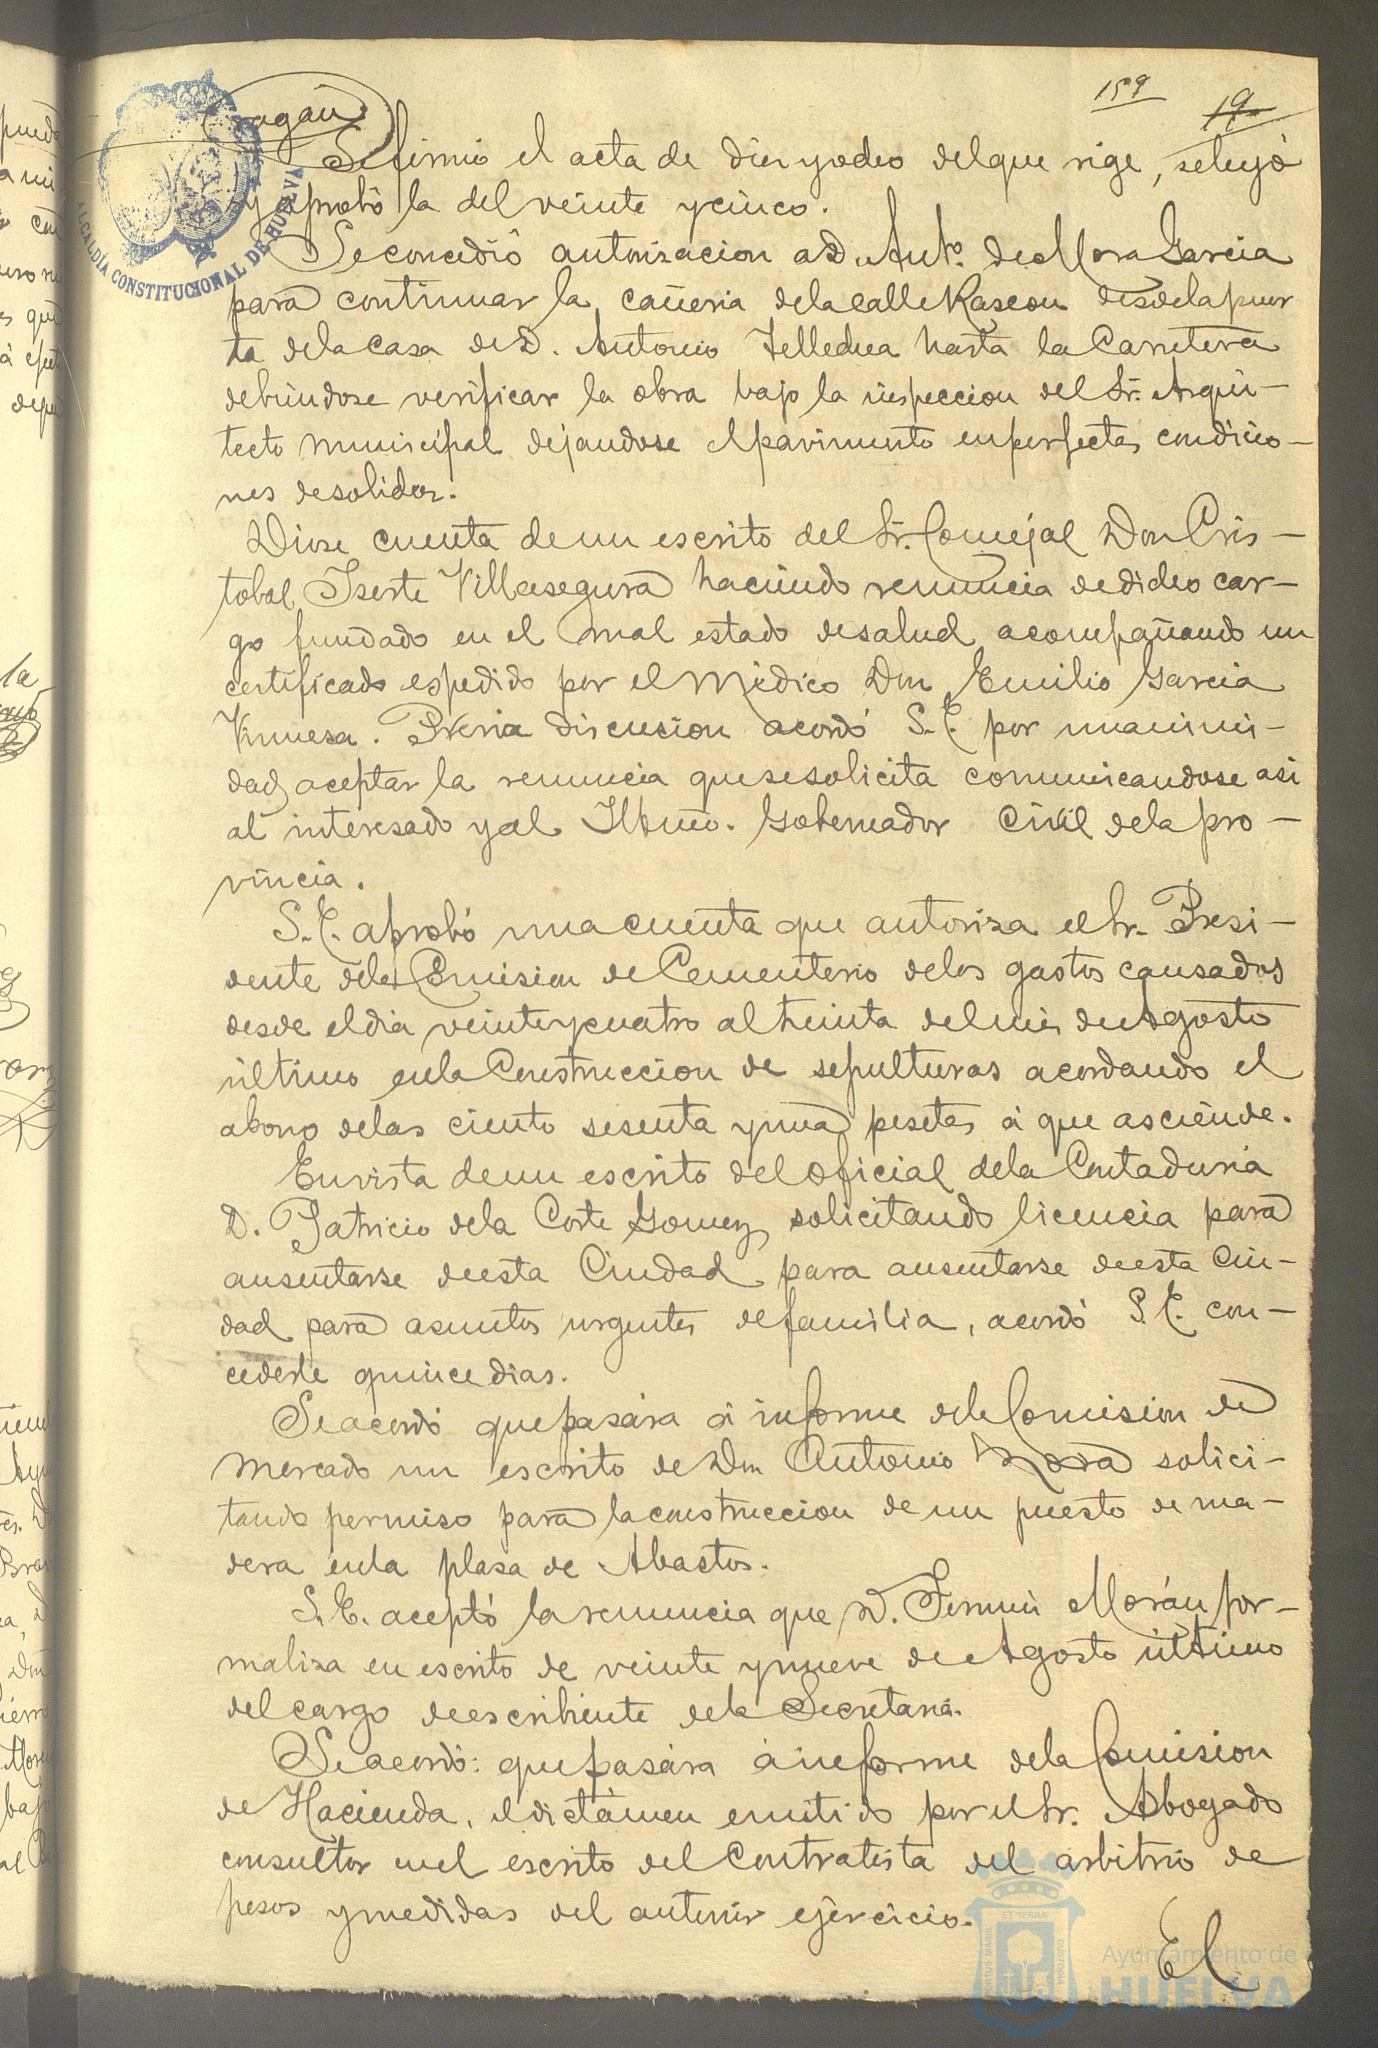 159 19
Ragan
Se firmó el acta de diez y ocho del que rige, se leyó
y aprobó la del veinte y cinco.
Se concedió autorizacion a D. Antº. de Mora Garcia
para continuar la cañeria de la calle Rascon desde la puer
ta de la casa de D. Antonio Tellechea hasta la Carretera
debiendose verificar la obra bajo la inspeccion del Sr. Arqui-
tecto municipal dejandose el pavimento en perfectas condicio-
nes de solidez.
Diose cuenta de un escrito del Sr. Concejal Don Cris-
tobal Iserte Villasegura haciendo renuncia de dicho car-
go fundado en el mal estado de salud acompañando un
certificado espedido por el Médico Don Emilio Garcia
Vinuesa. Previa discusion acordó S.E. por unanimi-
dad aceptar la renuncia que se solicita comunicandose asi
al interesado y al Iltmo. Gobernador Civil de la pro-
vincia.
S.E. aprobó una cuenta que autoriza el Sr. Presi-
dente de la Comision de Cementerio de los gastos causados
desde el dia veinte y cuatro al treinta del mes de Agosto
último en la Construccion de sepulturas acordando el
abono de las ciento sesenta y una pesetas á que asciende.
En vista de un escrito del oficial de la Contaduria
D. Patricio de la Corte Gomez solicitando licencia para
ausentarse de esta Ciudad para ausentarse de esta Ciu-
dad para asuntos urgentes de familia, acordó S.E. con-
cederle quince dias.
Se acordó que pasára á informe de la Comision de
Mercado un escrito de Don Antonio Mora solici-
tando permiso para la construccion de un puesto de ma-
dera en la plasa de Abastos.
S.E. aceptó la renuncia que D. Fermin Morán for-
maliza en escrito de veinte y nueve de Agosto último
del cargo de escribiente de la Secretaria.
Se acordó: que pasára á informe de la Comision
de Hacienda, el dictámen emitido por el Sr. Abogado
consultor en el escrito del Contratista del arbitrio de
pesos y medidas del anterior ejercicio.
El
ALCALDÍA CONSTITUCIONAL DE HUELVA
Ayuntamiento de
HUELVA